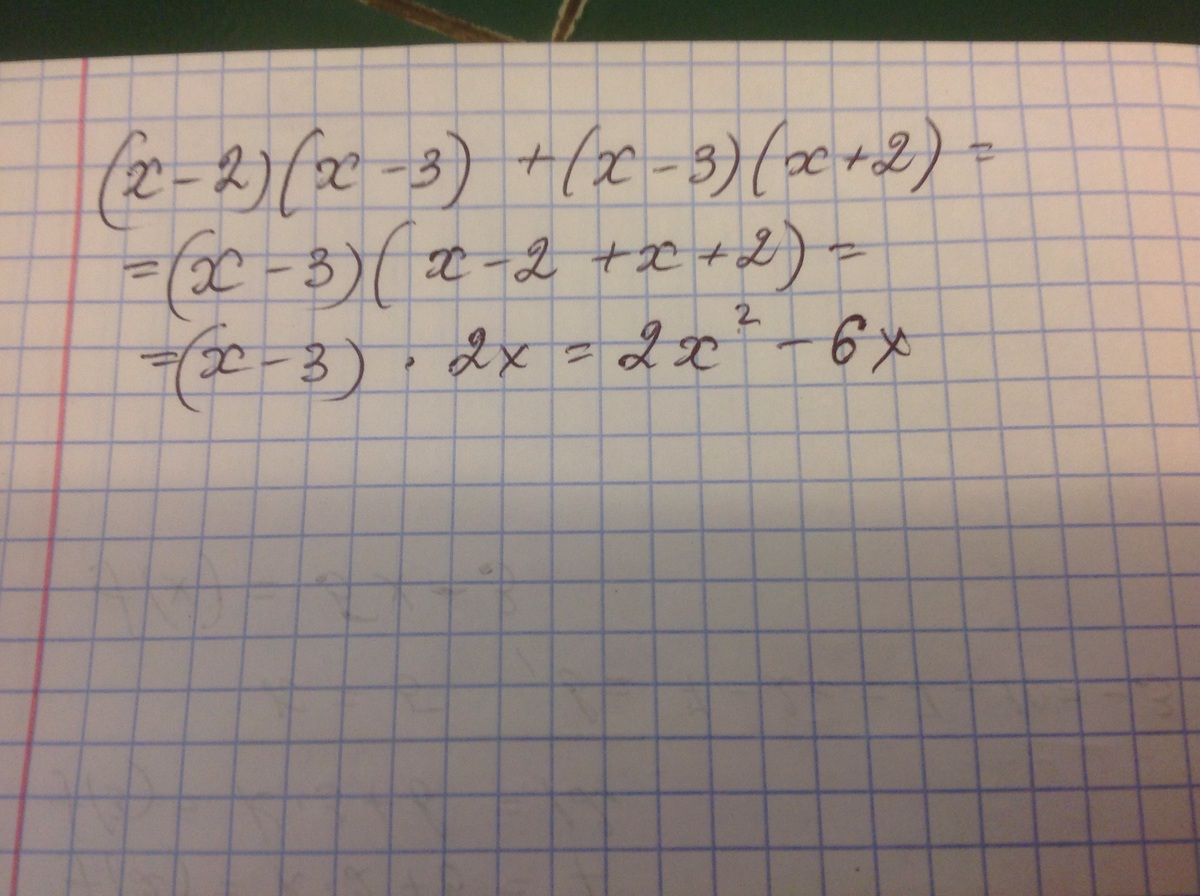 (x-2)(x-3) +(x-3)(x+2)=
=(x-3)( x-2 +x+2)=
=(x-3) · 2x = 2x² - 6x